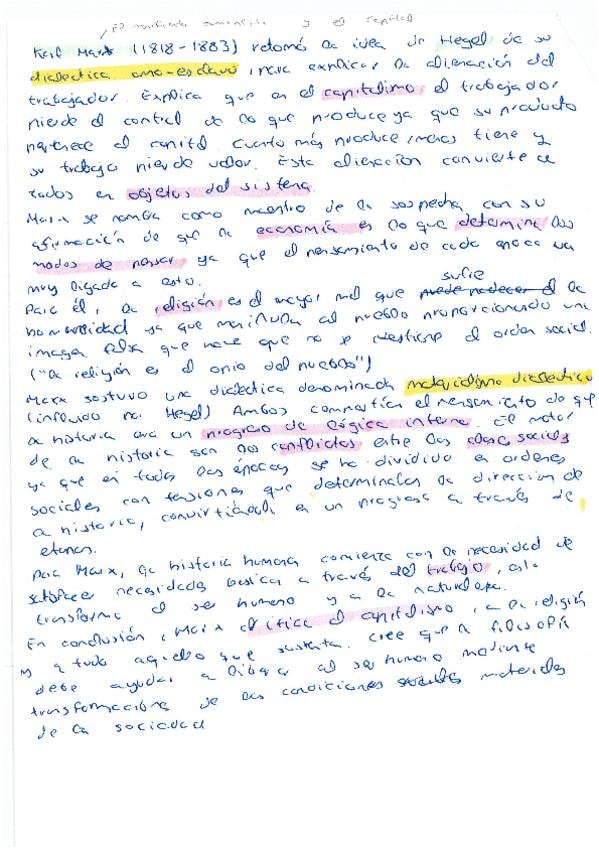 El manifiesto comunista y el capital
Karl Marx (1818-1883) retomó la idea de Hegel de su
dialectica amo-esclavo, para explicar la alienación del
trabajador. Explica que en el capitalismo el trabajador
pierde el control de lo que produce ya que su producto
pertenece al capital. Cuanto más produce, menos tiene y
su trabajo pierde valor. Esta alienación convierte a
todos en objetos del sistema.
Marx se nombra como maestro de la sospecha, con su
afirmación de que la economía es lo que determina los
modos de pensar ya que el pensamiento de cada época va
muy ligado a esto.
sufre
Para él, la religión es el mayor mal que puede padecer el la
humanidad ya que manipula al pueblo proporcionando una
imagen falsa que hace que no se cuestione el orden social.
("La religión es el opio del pueblo")
Marx sostuvo una dialéctica denominada materialismo dialectico
(influido por Hegel) Ambos compartían el pensamiento de que
la historia era un progreso de lógica interna. El motor
de la historia son los conflictos entre las clases sociales
ya que en todas las épocas se ha dividido en ordenes
sociales con tensiones que determinaban la dirección de
la historia, convirtiéndola en un progreso a través de
etapas.
Para Marx, la historia humana comienza con la necesidad de
satisfacer necesidades basica a través del trabajo, esto
transforma el ser humano y a la naturaleza.
En conclusión, Marx critica el capitalismo, a la religión
y a todo aquello que sustenta. Cree que la filosofía
debe ayudar a liberar al ser humano mediante
transformaciones de las condiciones sociales materiales
de la sociedad